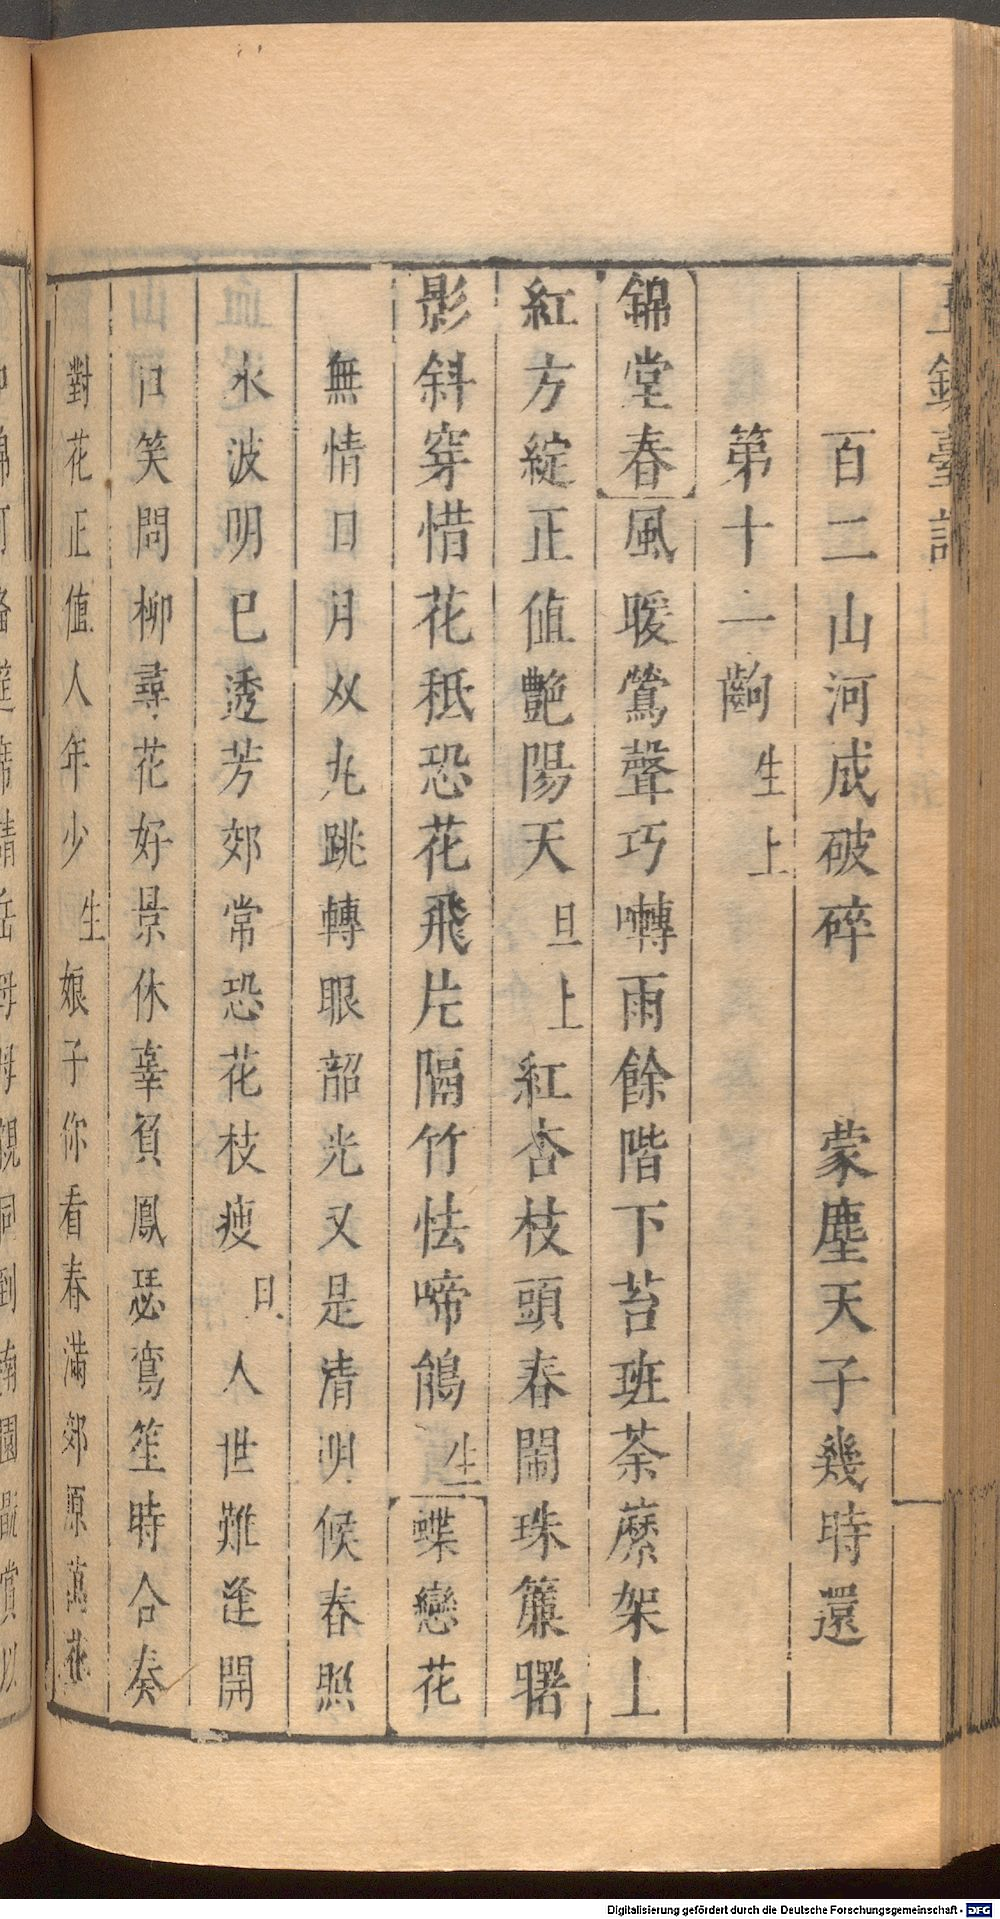 百二山河成破碎　蒙塵天子幾時還
第十一齣 生上
錦堂春 風暖鶯聲巧囀雨餘階下苔班荼蘼架上
紅方綻正值艷陽天 旦上 紅杏枝頭春鬧珠簾曙
影斜穿惜花秪恐花飛片隔竹怯啼鵑 生 蝶戀花
無情日月双丸跳轉眼韶光又是清明候春照
水波明已透芳郊常恐花枝瘦 旦 人世難逢開
口笑問柳尋花好景休辜負鳳瑟鸞笙時合奏
對花正值人年少 生 娘子你看春滿郊原萬花
Digitalisierung gefördert durch die Deutsche Forschungsgemeinschaft - DFG